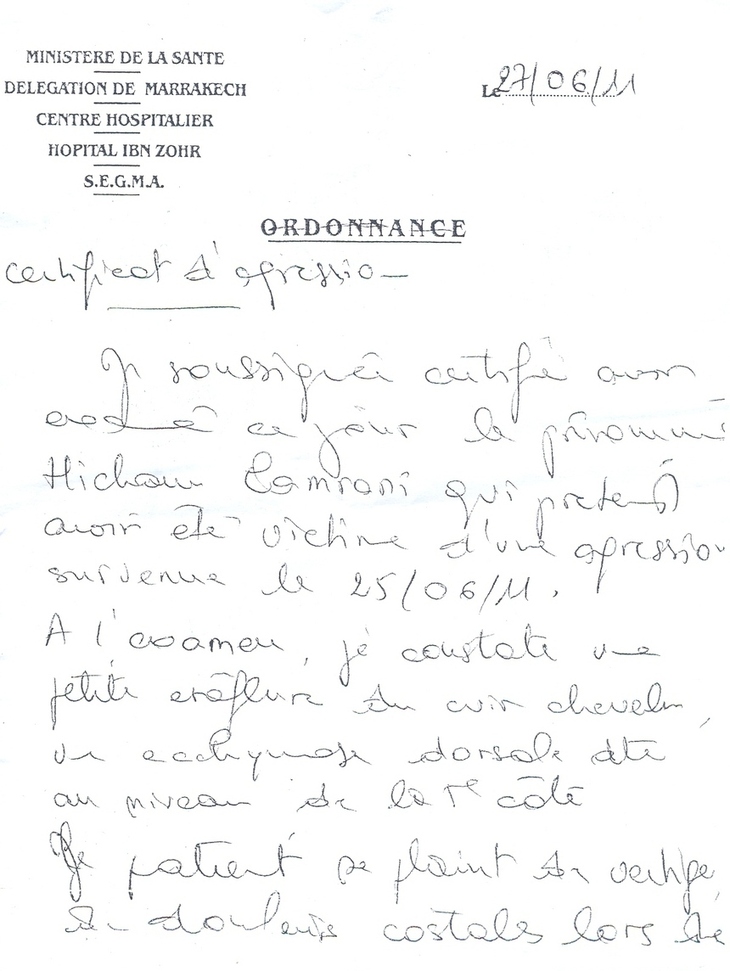 MINISTERE DE LA SANTE
DELEGATION DE MARRAKECH
CENTRE HOSPITALIER
HOPITAL IBN ZOHR
S.E.G.M.A.
Le 27/06/11
ORDONNANCE
certificat d'agression
Je soussignée certifie avoir
ce jour le prénommé
Hicham Lamrani qui pretend
avoir été victime d'une agression
survenue le 25/06/11.
A l'examen, je constate une
petite éraflure du cuir chevelu,
une ecchymose dorsale
au niveau de la côte
Le patient se plaint de vertige,
de douleurs costales lors de